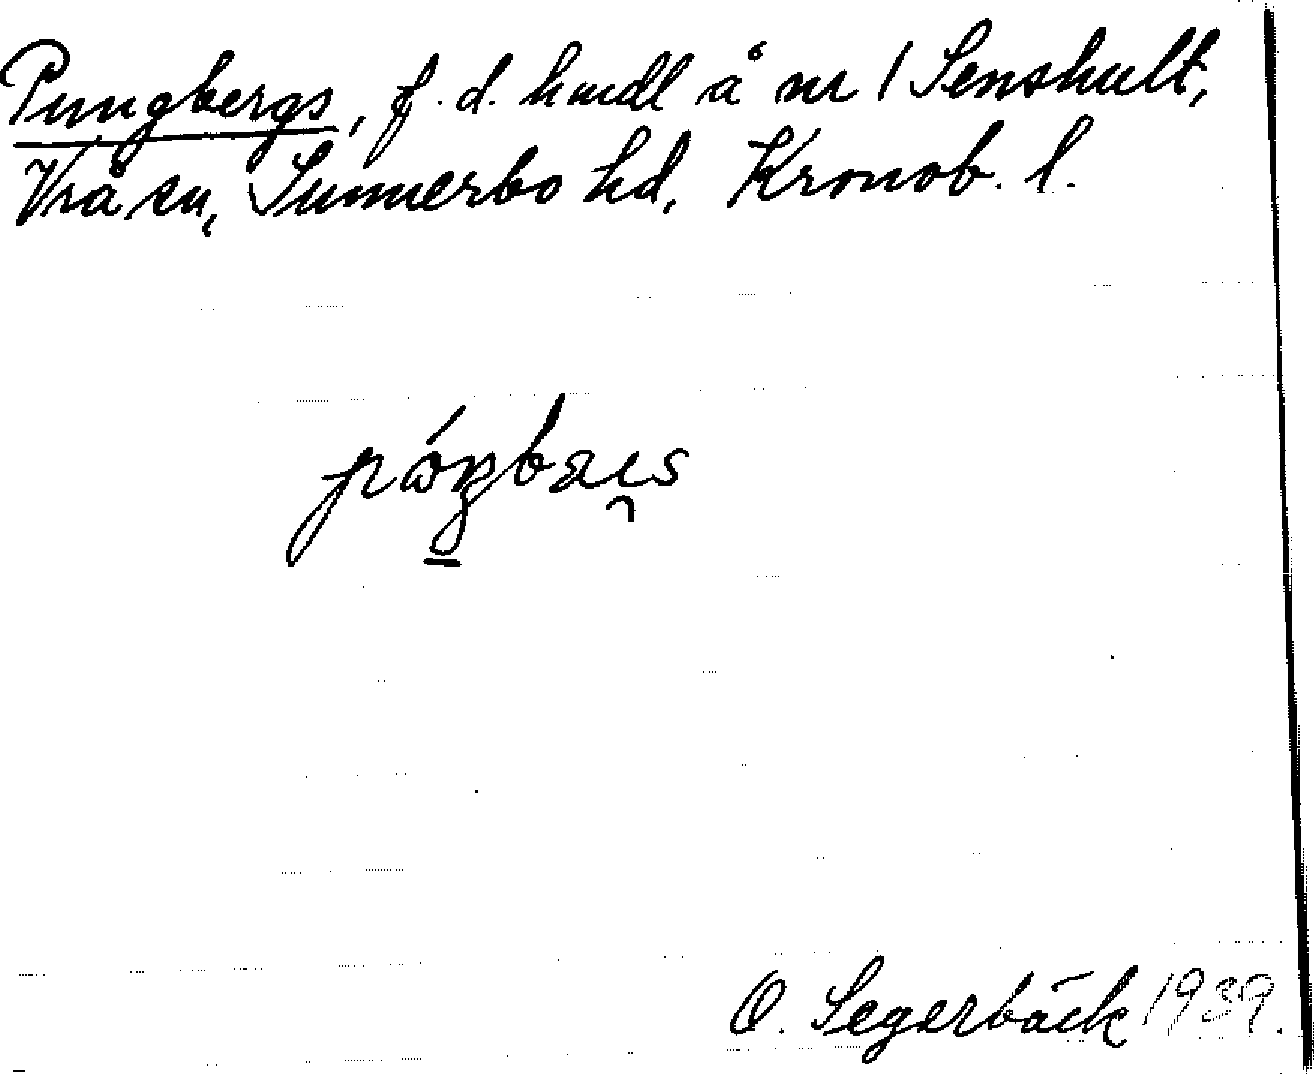 Pungbergs, f. d. hmdl å nr 1 Senshult,
Vrå sn, Sunnerbo hd, Kronob. l.
O. Segerbäck 1939.